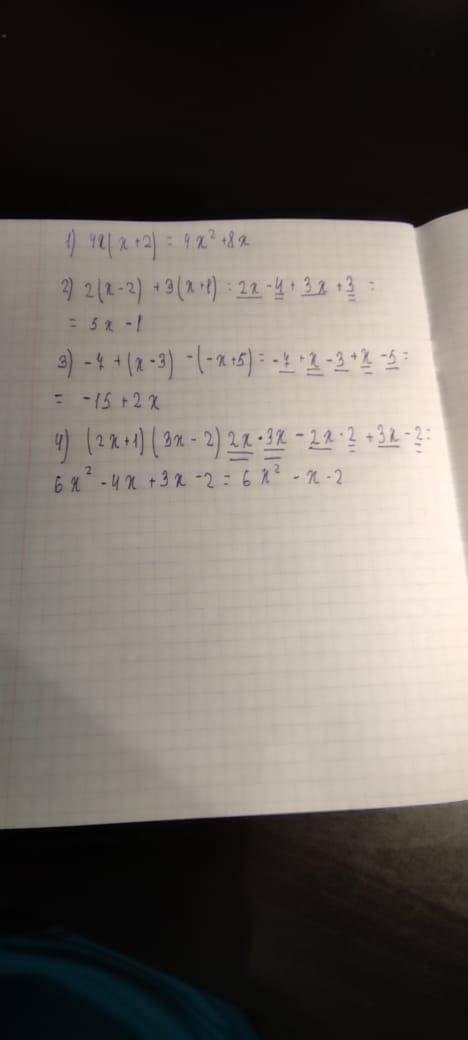 1) 4x(x+2) = 4x² + 8x
2) 2(x-2) + 3(x+1) = 2x - 4 + 3x + 3 =
= 5x - 1
3) -7 + (x-3) - (-x+5) = -7 + x - 3 + x - 5 =
= -15 + 2x
4) (2x+1)(3x-2) 2x·3x - 2x·2 + 3x - 2 =
6x² - 4x + 3x - 2 = 6x² - x - 2